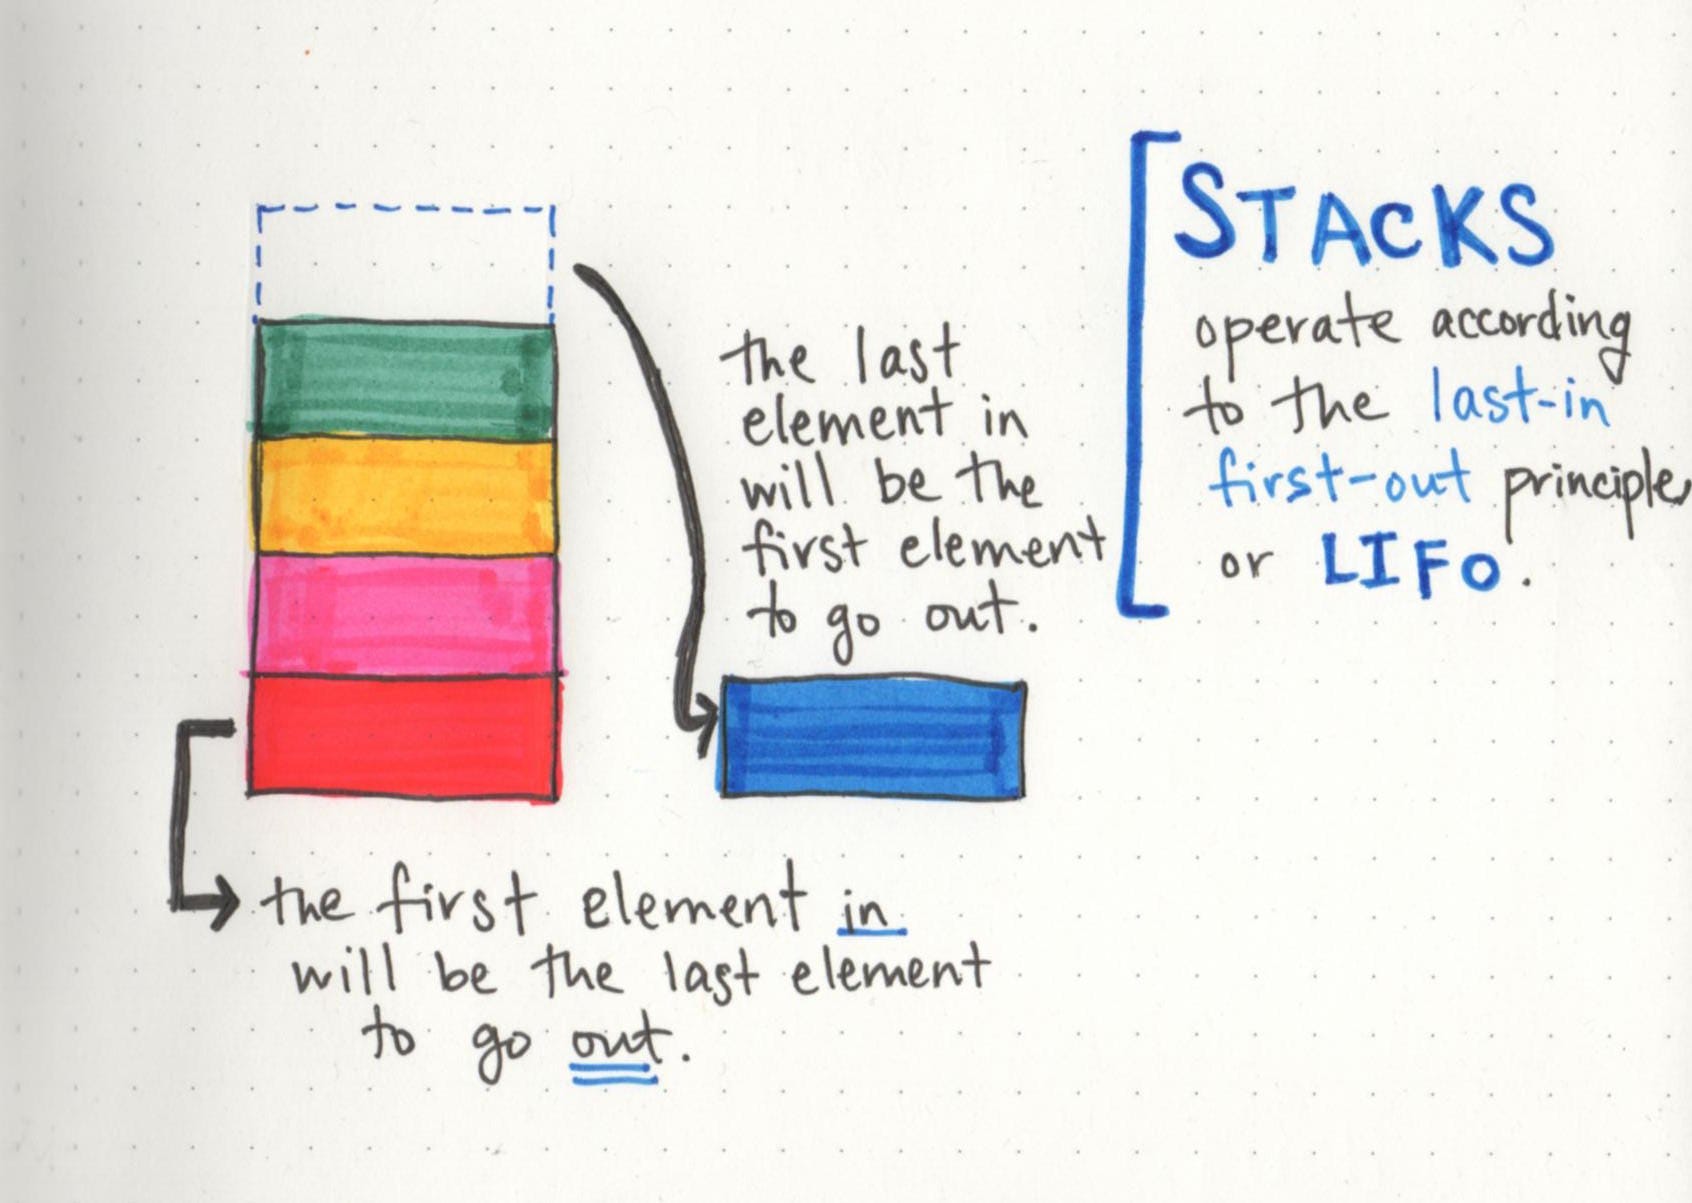 STACKS
operate according
to the last-in
first-out principle,
or LIFO.
the last
element in
will be the
first element
to go out.
the first element in
will be the last element
to go out.